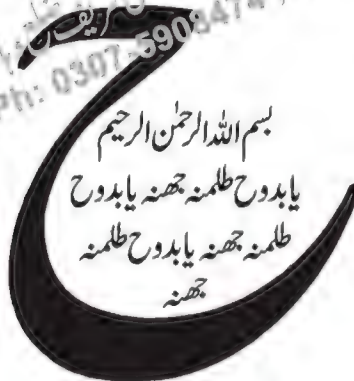 Ph: 0307-5903474
ح
بسم الله الرحمن الرحيم
یا بدوح طلمنہ جھنہ یا بدوح
طلمنہ جھنہ یا بدوح طلمنہ
جھنہ